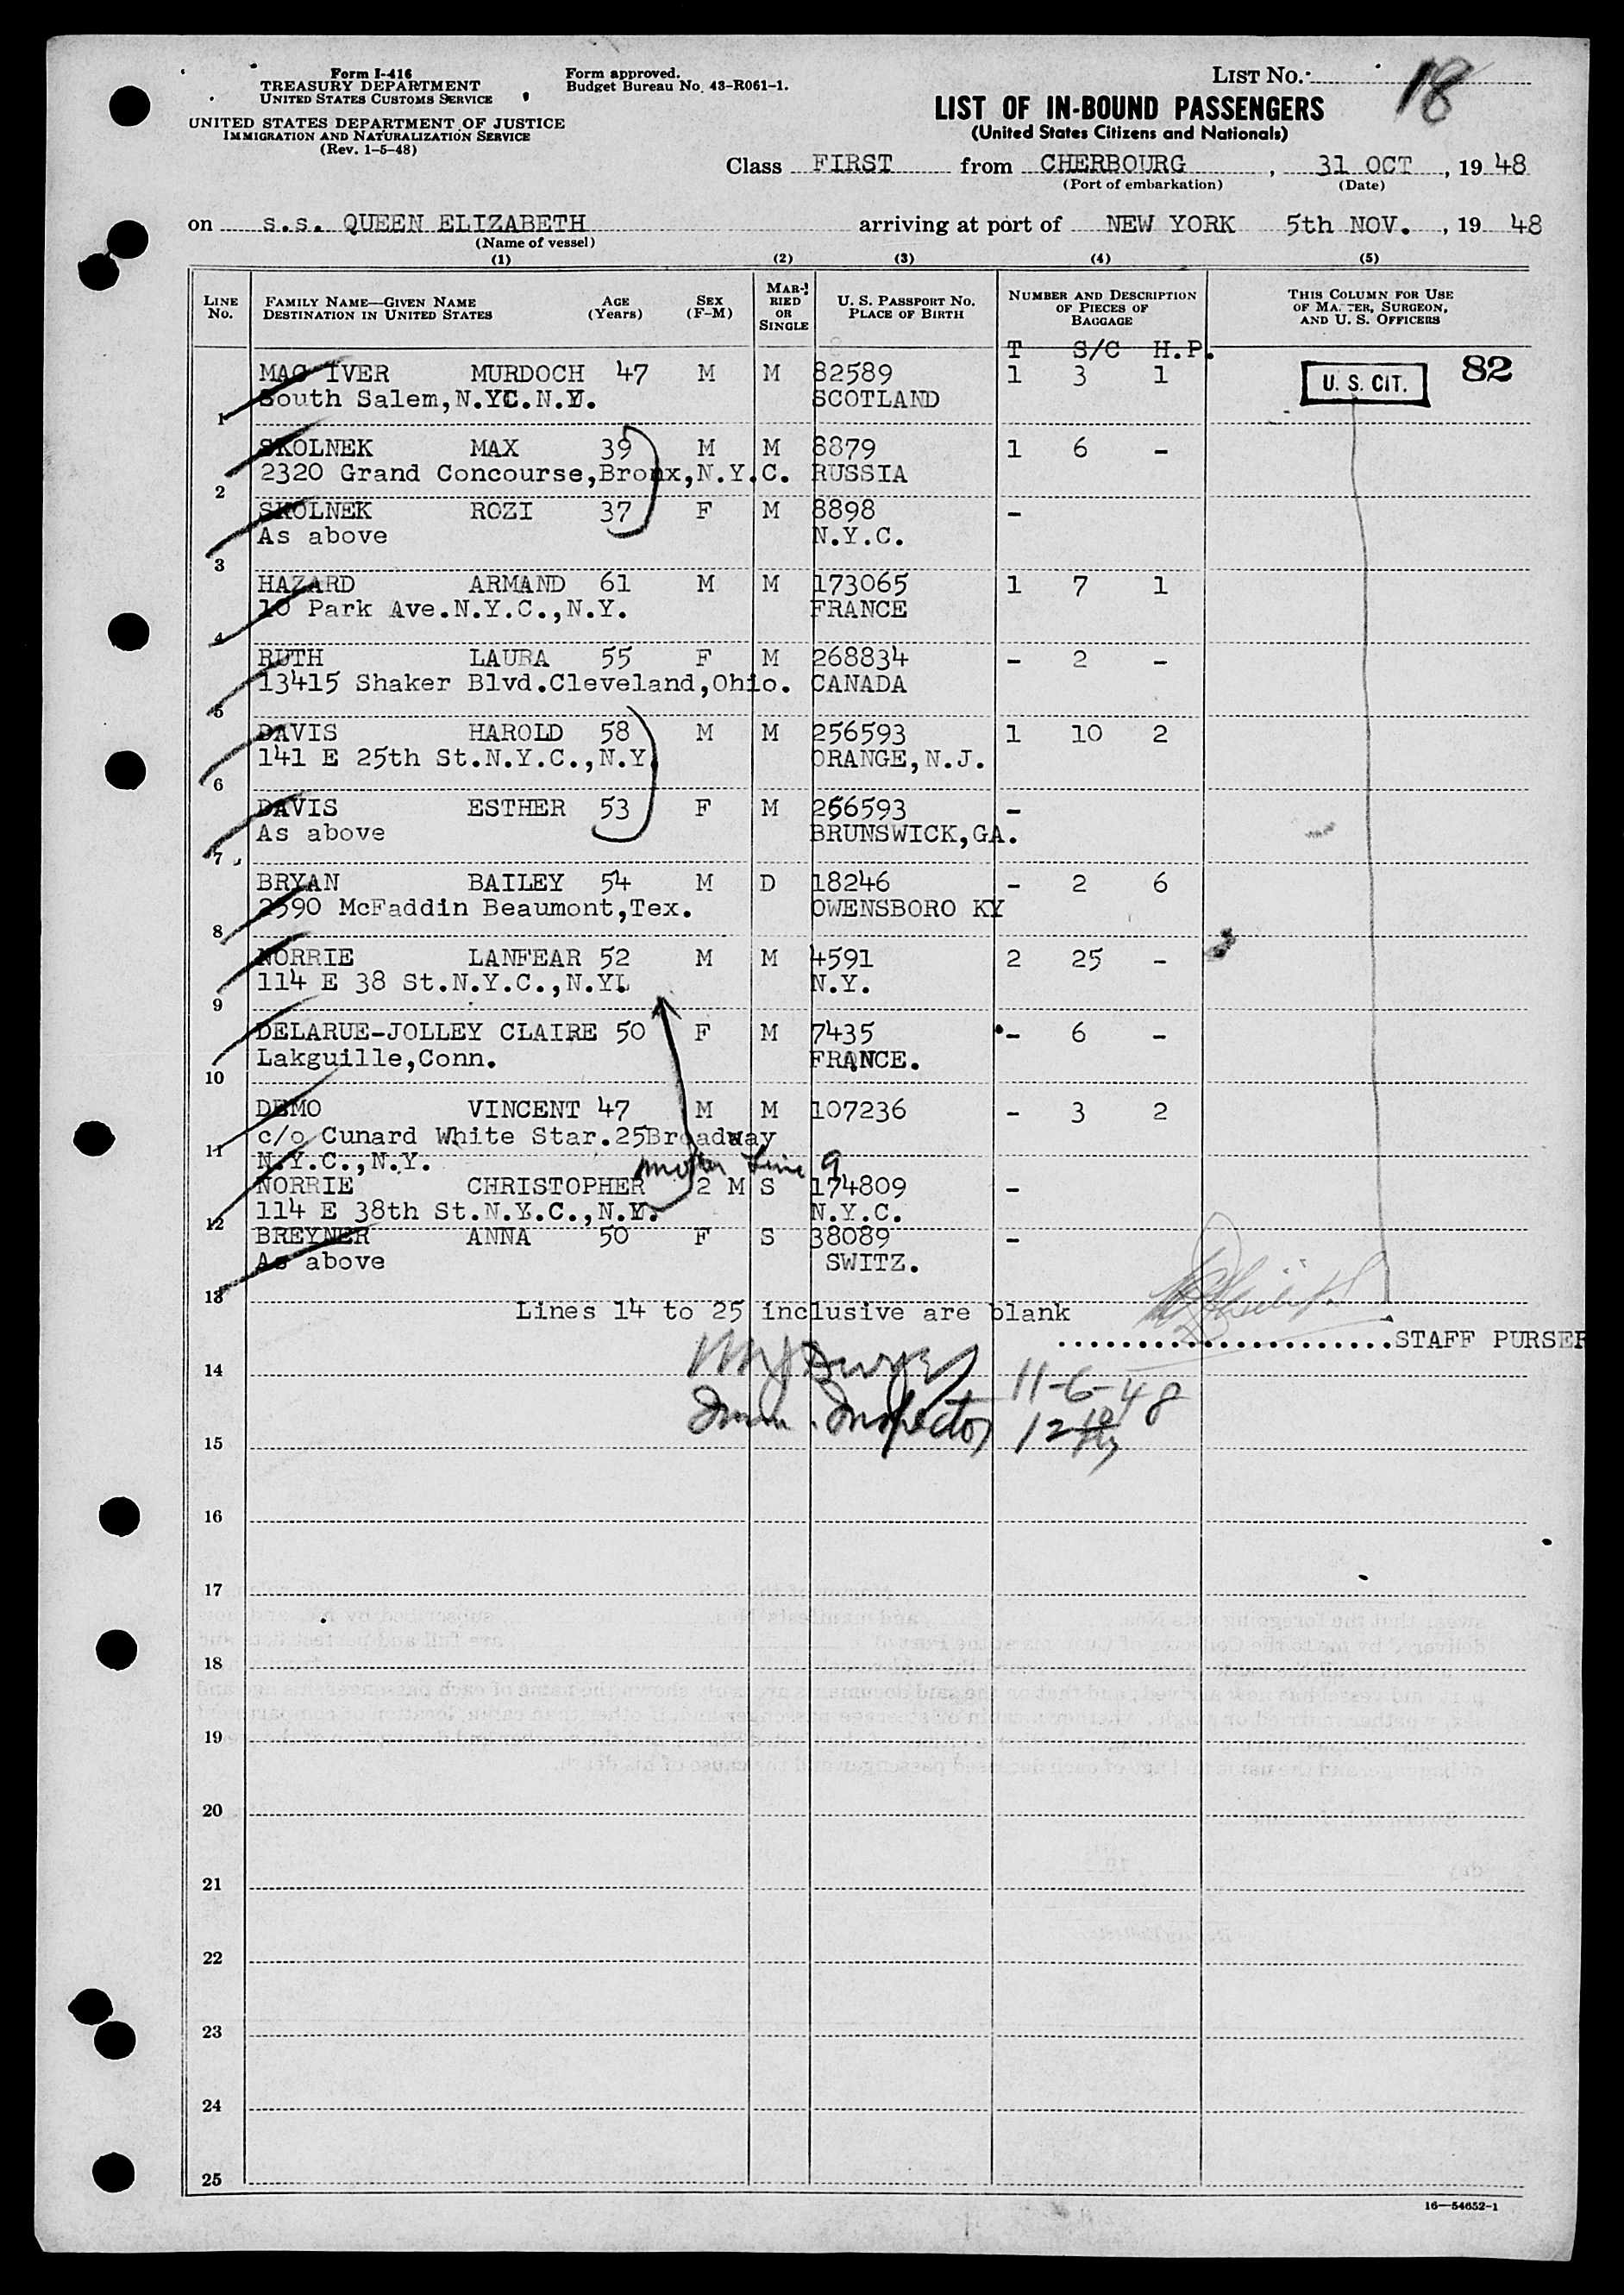 Form I-416
TREASURY DEPARTMENT
UNITED STATES CUSTOMS SERVICE
UNITED STATES DEPARTMENT OF JUSTICE
IMMIGRATION AND NATURALIZATION SERVICE
(Rev. 1-5-48)
Form approved.
Budget Bureau No. 43-R061-1.
LIST NO. 18
LIST OF IN-BOUND PASSENGERS
(United States Citizens and Nationals)
Class FIRST from CHERBOURG, 31 OCT, 19 48
(Port of embarkation) (Date)
on s.s. QUEEN ELIZABETH arriving at port of NEW YORK 5th NOV., 19 48
(Name of vessel)
(1) (2) (3) (4) (5)
LINE No. FAMILY NAME—GIVEN NAME DESTINATION IN UNITED STATES AGE (Years) SEX (F-M) MARRIED OR SINGLE U. S. PASSPORT NO. PLACE OF BIRTH NUMBER AND DESCRIPTION OF PIECES OF BAGGAGE THIS COLUMN FOR USE OF MASTER, SURGEON, AND U. S. OFFICERS
T S/C H.P.
MAC IVER MURDOCH 47 M M 82589 1 3 1 U. S. CIT. 82
South Salem, N.YC.N.Y. SCOTLAND
1
SKOLNEK MAX 39 M M 8879 1 6 -
2320 Grand Concourse,Bronx,N.Y.C. RUSSIA
2
SKOLNEK ROZI 37 F M 8898 -
As above N.Y.C.
3
HAZARD ARMAND 61 M M 173065 1 7 1
10 Park Ave.N.Y.C.,N.Y. FRANCE
4
RUTH LAURA 55 F M 268834 - 2 -
13415 Shaker Blvd.Cleveland,Ohio. CANADA
5
DAVIS HAROLD 58 M M 256593 1 10 2
141 E 25th St.N.Y.C.,N.Y. ORANGE,N.J.
6
DAVIS ESTHER 53 F M 256593 -
As above BRUNSWICK,GA.
7
BRYAN BAILEY 54 M D 18246 - 2 6
2590 McFaddin Beaumont,Tex. OWENSBORO KY
8
NORRIE LANFEAR 52 M M 4591 2 25 -
114 E 38 St.N.Y.C.,N.Y. N.Y.
9
DELARUE-JOLLEY CLAIRE 50 F M 7435 - 6 -
Lakguille,Conn. FRANCE.
10
DEMO VINCENT 47 M M 107236 - 3 2
c/o Cunard White Star.25Broadway
11
N.Y.C.,N.Y.
Line 9
NORRIE CHRISTOPHER 2 M S 174809 -
114 E 38th St.N.Y.C.,N.Y. N.Y.C.
12
BREYNER ANNA 50 F S 38089 -
As above SWITZ.
13
Lines 14 to 25 inclusive are blank
STAFF PURSER
14
11-6-48
Imm. Inspector
15
16
17
18
19
20
21
22
23
24
25
16—54652-1